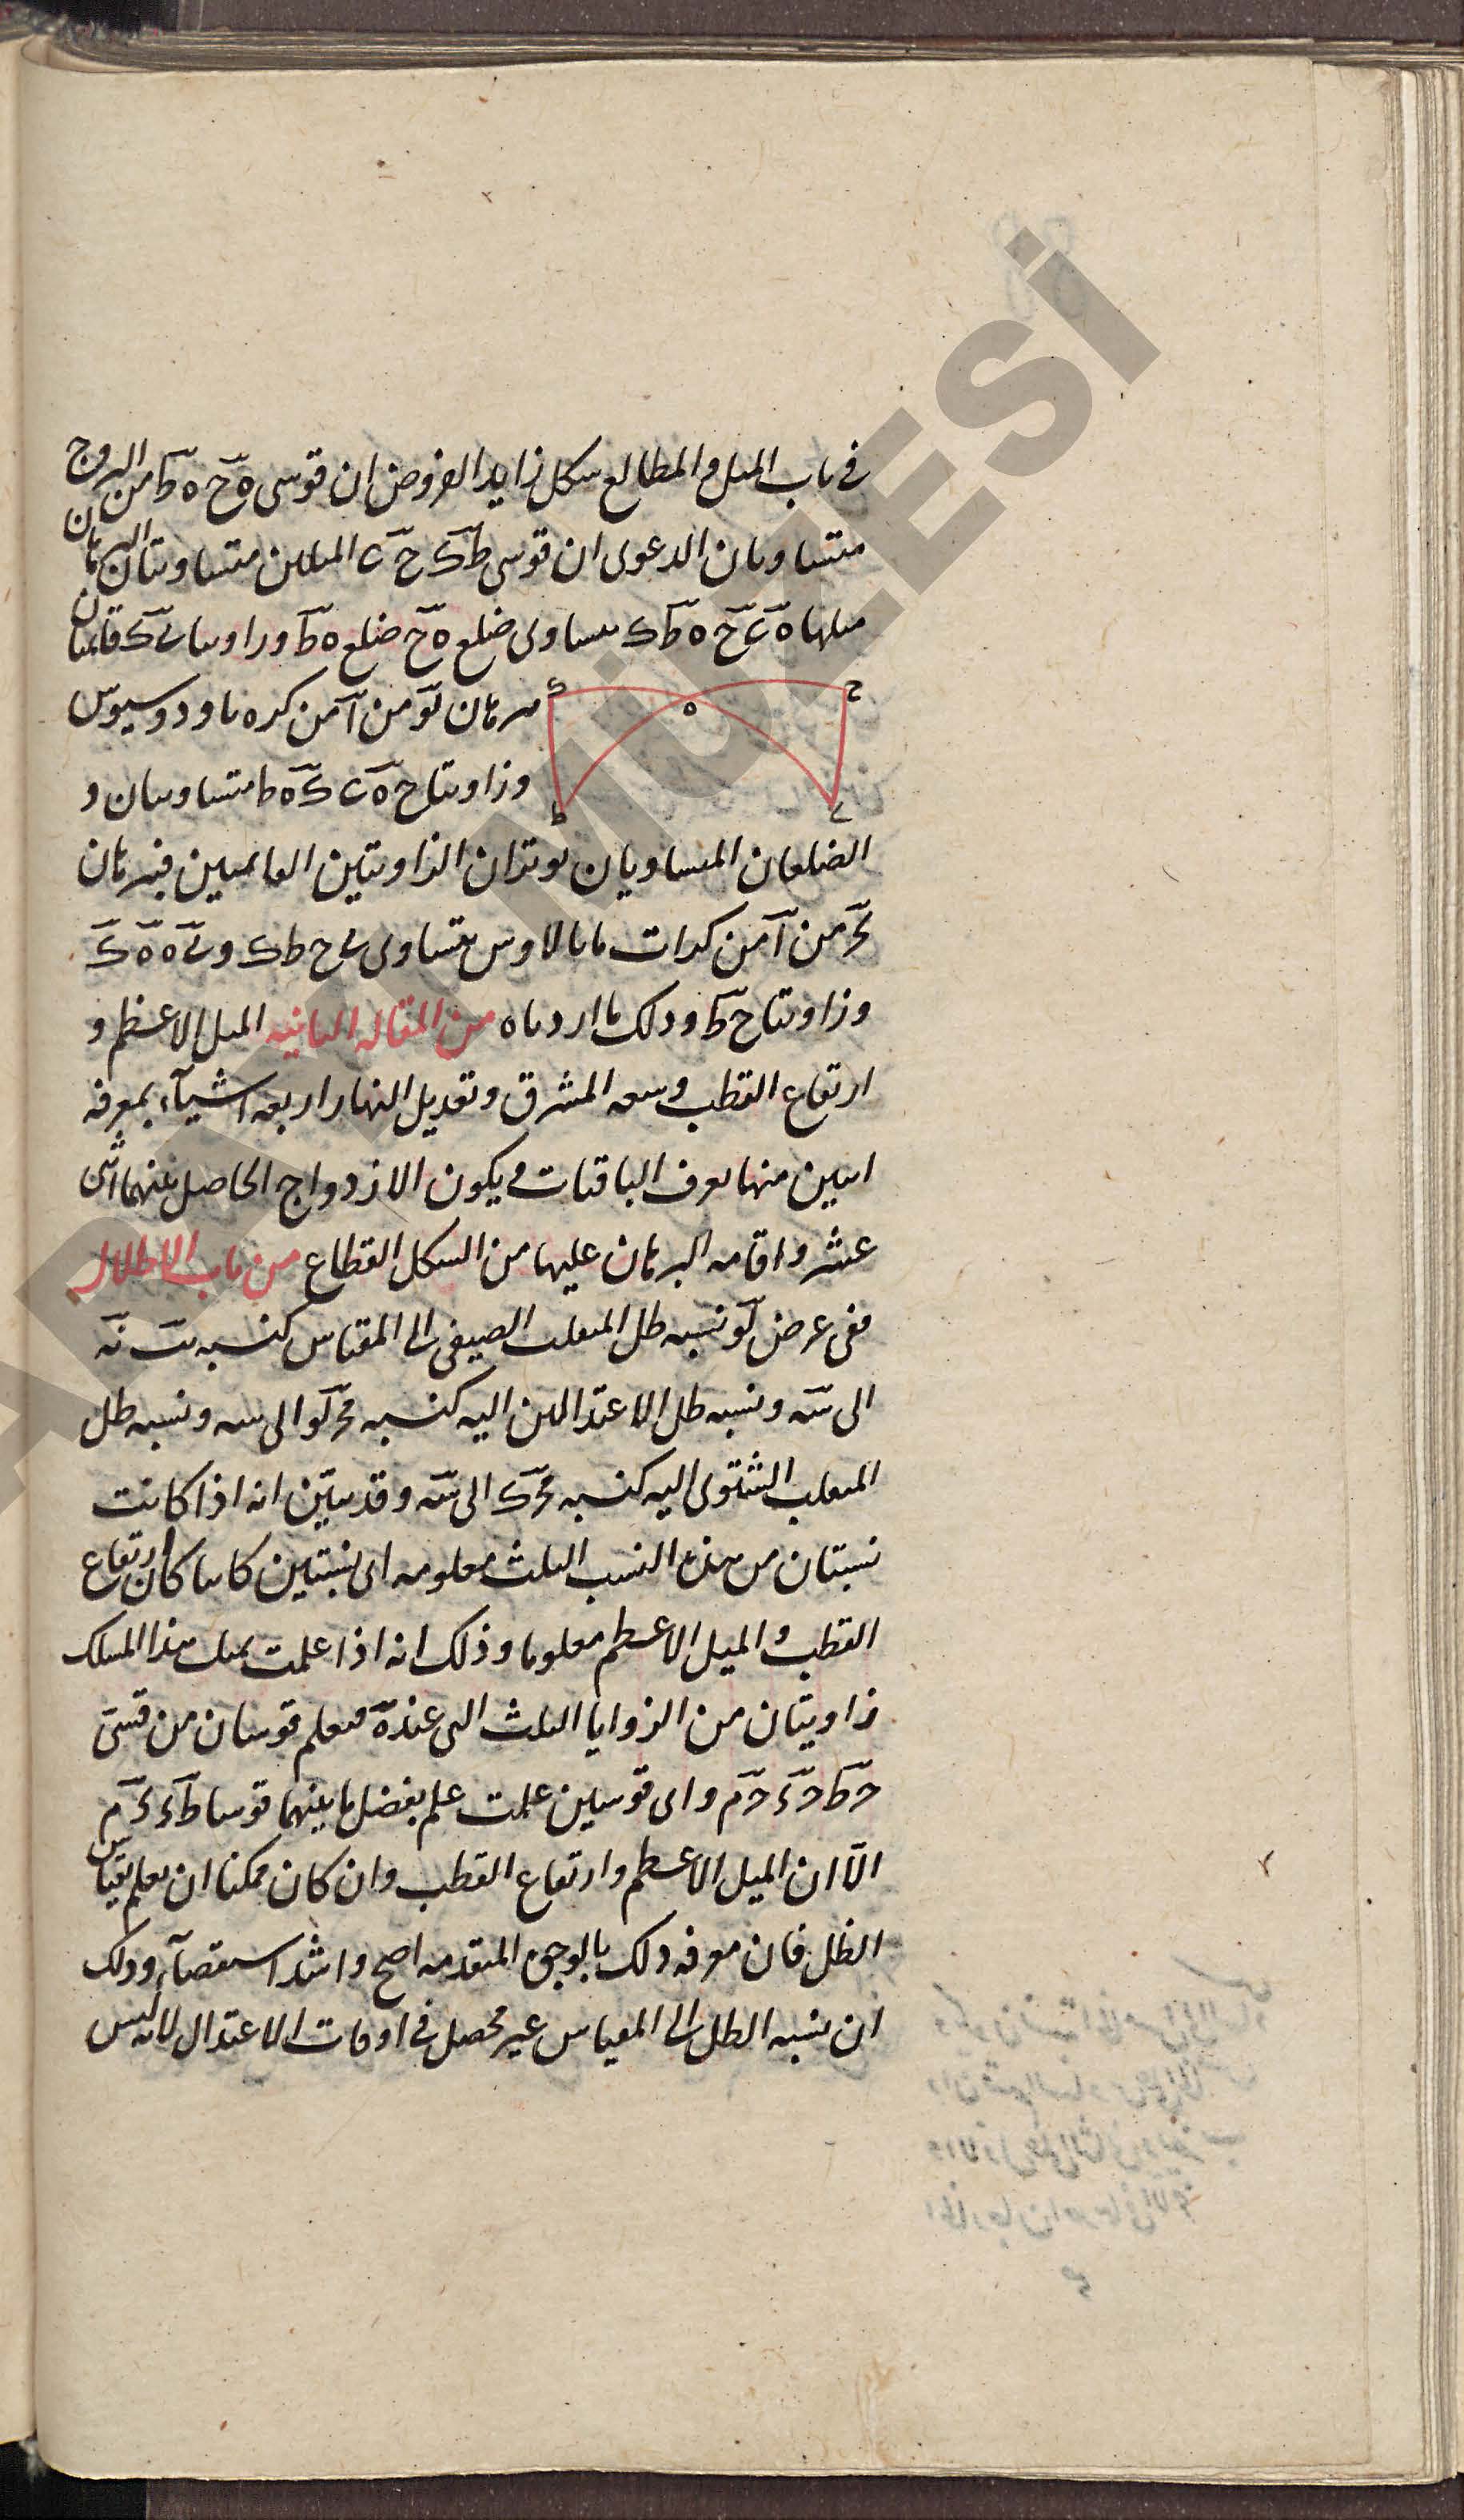 في باب الميل والمطالع شكل زايد المفروض ان قوسى هح هط من البروج
متساويان الدعوى ان قوسى طك ح ى الميلين متساويتان البرهان
مثلثا ه ى ح ه ط ك يساوى ضلع ه ح ضلع ه ط وزاويتا ى ك قايمتان
ح
ك
ه
ى
ط
برهان لو من ا من كره ثاودوسيوس
وزاويتا ح ه ى ك ه ط متساويتان و
الضلعان المتساويان يوتران الزاويتين القايمتين فببرهان
من ا من كرات مانالاوس يتساوى ى ح ط ك و ى ه ه ك
وزاويتا ح ط وذلك ما اردناه من المقاله الثانيه الميل الاعظم و
ارتفاع القطب وسعه المشرق وتعديل النهار اربعه اشيآء بمعرفه
اثنين منها يعرف الباقيات ويكون الازدواج الحاصل عنهما اثنى
عشر واقامه البرهان عليها من الشكل القطاع من باب الاظلال
ففى عرض لو نسبه ظل المنقلب الصيفى الى المقياس كنسبه نه
الى س ونسبه ظل الاعتدالين اليه كنسبه مح لو الى س ونسبه ظل
المنقلب الشتوى اليه كنسبه الى س وقد يتبين انه اذا كانت
نسبتان من هذه النسب الثلث معلومه اى نسبتين كانتا كان ارتفاع
القطب والميل الاعظم معلوما وذلك انه اذا علمت بمثل هذا المسلك
زاويتان من الزوايا الثلث التى عند ه فيعلم قوسان من قسى
ح ط ح ء ح م واى قوسين علمت علم بفضل ما بينهما قوسا ط ء ء م
الّا ان الميل الاعظم وارتفاع القطب وان كان ممكنا ان يعلم بقياس
الظل فان معرفه ذلك بالوجوه المتقدمه اصح واشد استقصآء وذلك
ان نسبه الظل الى المقياس غير محصل في اوقات الاعتدال لانه ليس